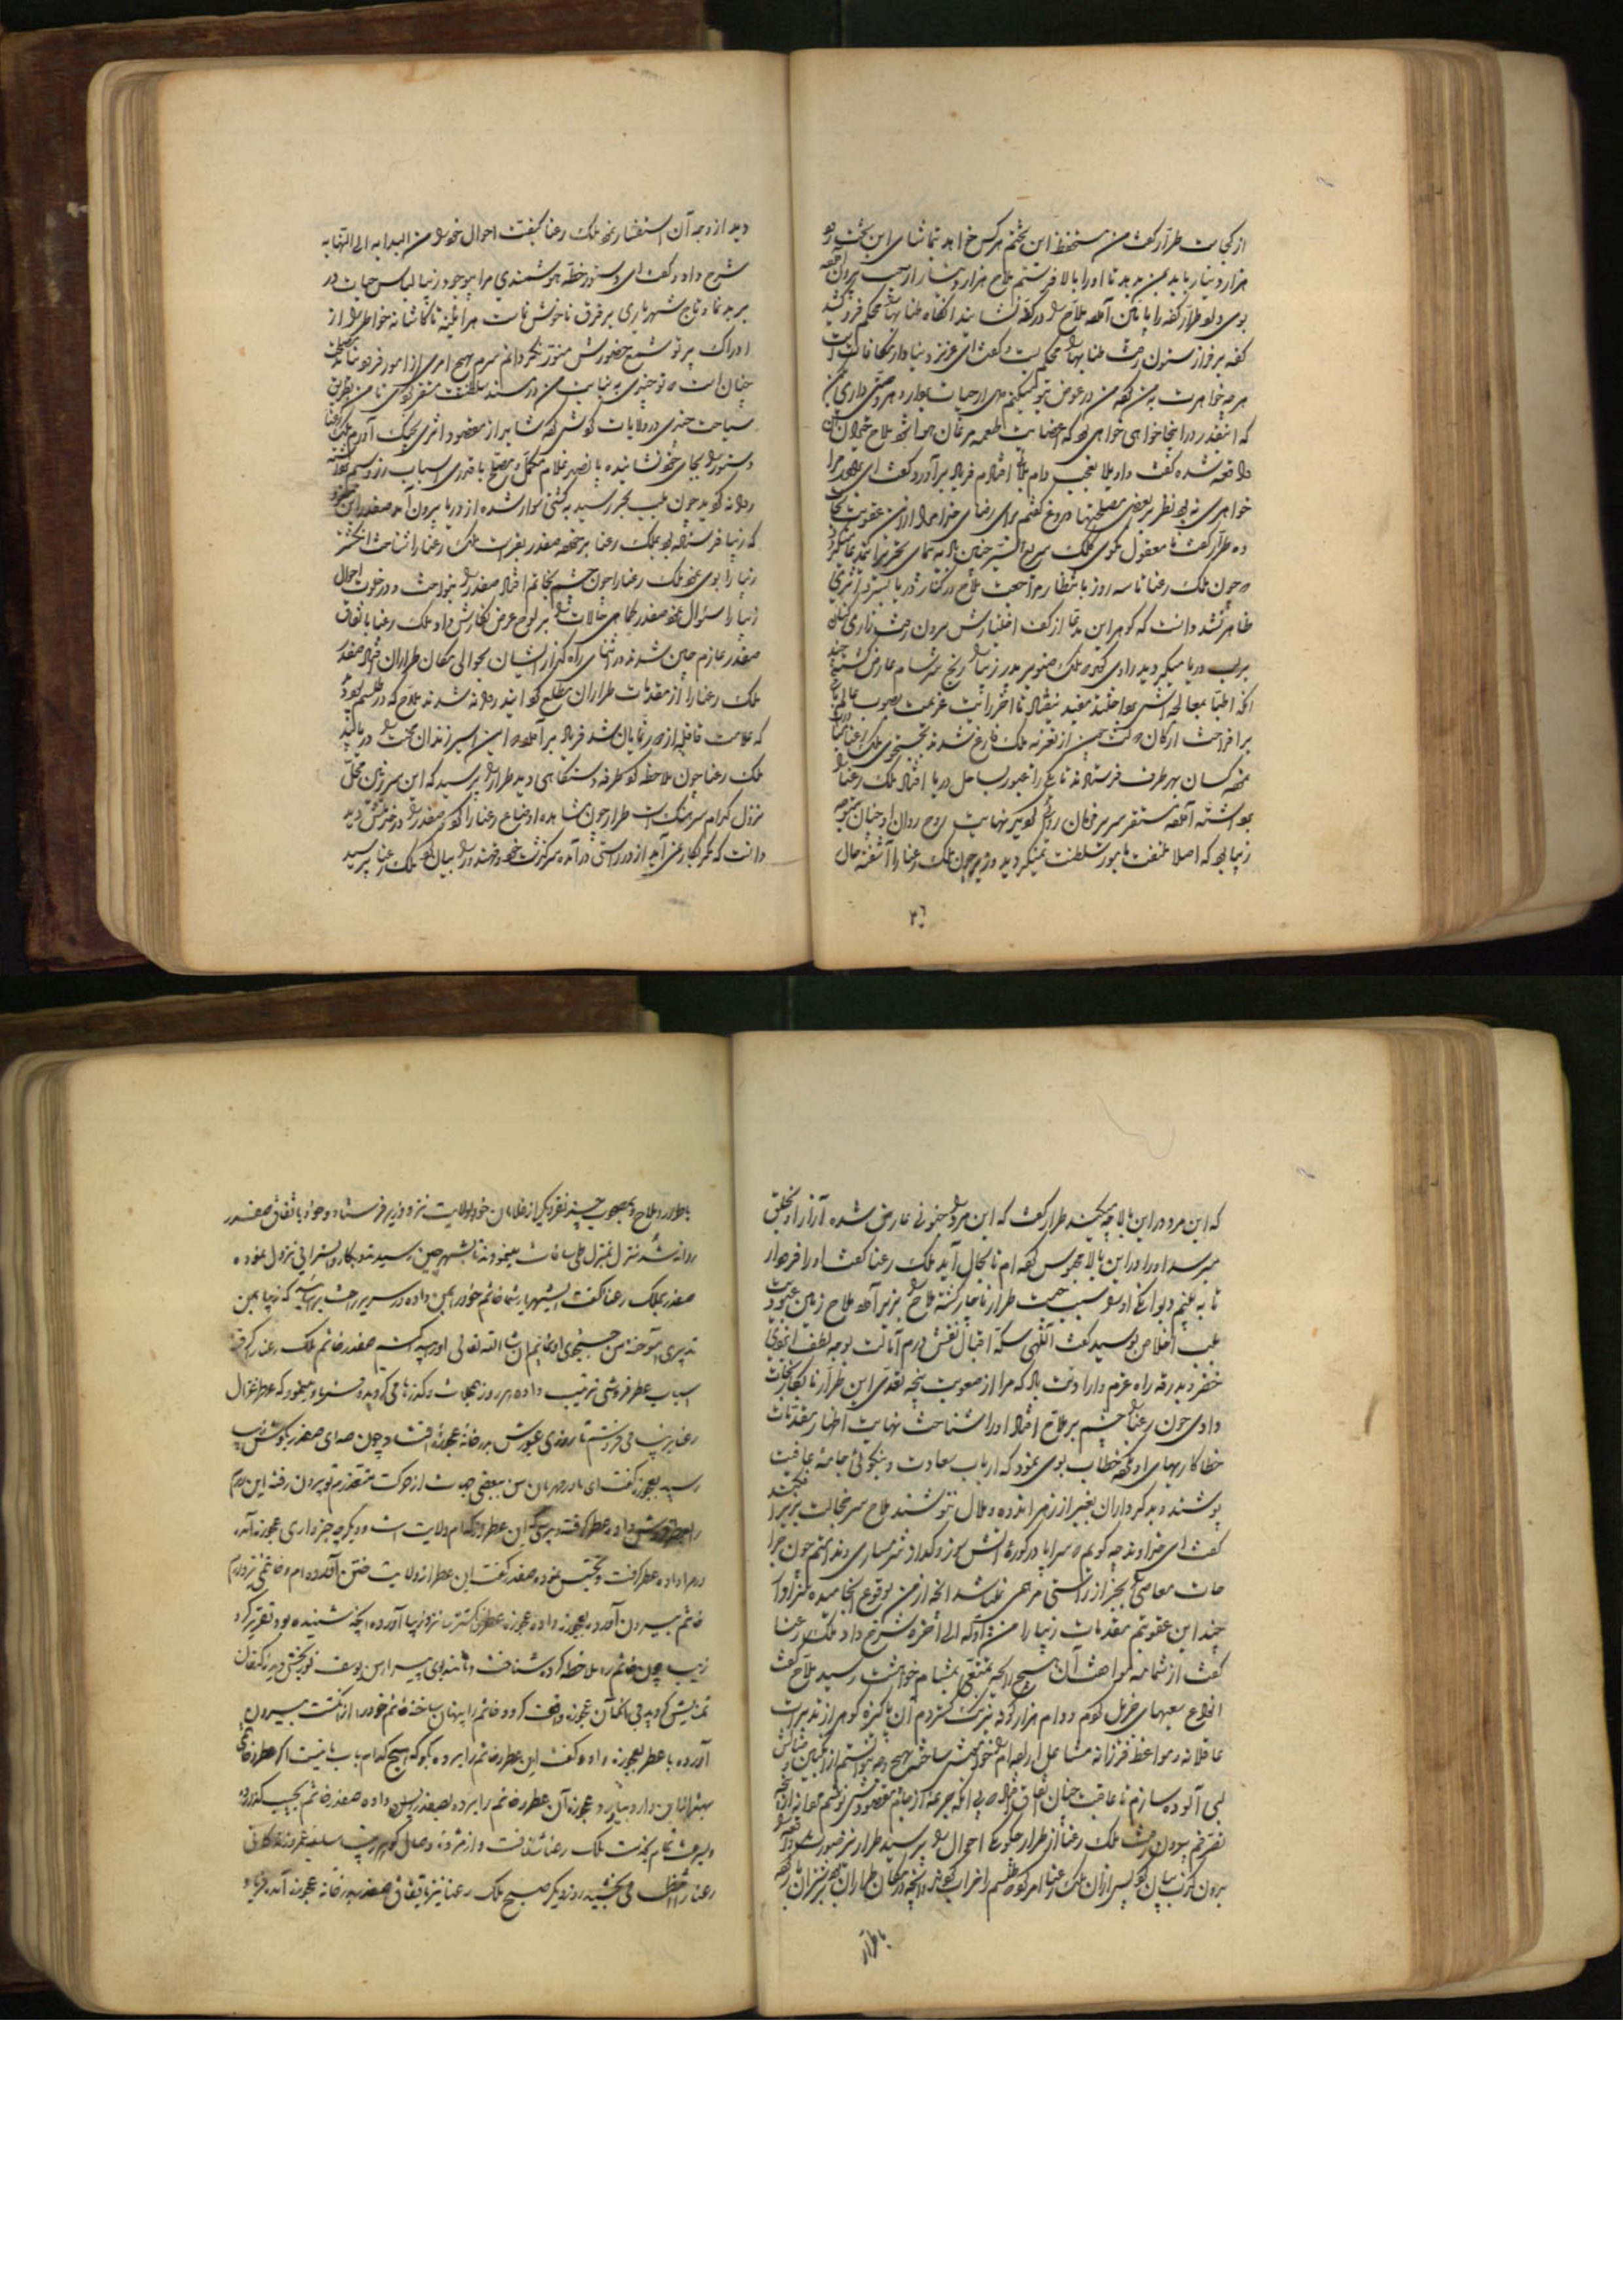 از کجاست طرّار گفت من مستحفظ این تختم هر کس خواهد تماشای این تخت رود
هزار دینار باید بمن بدهد تا او را بالا فرستم ملاح هزار دینار از جیب بیرون آورده
بوی داد طرار کفه را پائین آورده ملاح را در کفه نشانید آنگاه طنابها را محکم فرو کشید
کفه بر فراز ستون رفت طنابها را محکم بست و گفت ای عزیز
هر چه خواهر است به من که من در عوض
که آنقدر در اینجا خواهی بود که اعضایت طعمه مرغان هوا شود ملاح حیران
واقعه شده گفت داد بلا بعجب دام بلا افتادم فریاد برآورد و گفت ای برادر مرا
خواهری نبود نظر ببعضی مصلحتها دروغ گفتم برای رضای خدا مرا ازین عقوبت نجات
ده طرّار گفت نامعقول مگوی
و چون ملک رعنا تا سه روز بانتظار مراجعت ملاح در کنار دریا بسر برد اثری
ظاهر نشد دانست که گوهر این مدعا از کف اختیارش بیرون رفت زاری کنان
بر لب دریا میگردید راوی گوید ملک صنوبر پدر زیبا را رنج سرسام عارض گشته
آنکه اطبا بمعالجه اش پرداختند مفید نیفتاد تا آخر رایت عزیمت بصوب عالم
برافراخت ارکان دولت چین از تعزیه ملک فارغ شدند بجستجوی ملک رعنا
کسان بهر طرف فرستادند تا یکی را عبور بساحل دریا افتاد ملک رعنا را
برداشته آورده مستقر سریر فرمان روائی کرد لیکن نهایت روح روان او چنان متوجه
زیبا بود که اصلا ملتفت بامور سلطنت نمیگردید وزیر چون ملک رعنا را آشفته حال
دید از وجه آن استفسار نمود ملک رعنا کیفیت احوال خود را من البدایه الی النهایه
شرح داد و گفت ای دستور خطّه هوشمندی مرا بوجود زیبا لباس حیات در
بر بدنما و تاج شهریاری بر فرق ناخوش نماست هر آینه تا کاشانه خواطر را از
ادراک پرتو شمع حضورش منور نکردانم سرم بهیچ امری از امور فرو نیاید
چنان است که تو چندی به نیابت من در مسند سلطنت متمکن کردی تا من بطریق
سیاحت چندی در ولایات گردش کنم شاید از مقصود اثری بچنگ آورم ملک رعنا
دستور را بجای خود نشانیده با پانصد غلام مکمل و مصلح با قدری اسباب زر و سیم
روانه گردید چون بلب بحر رسید بکشتی سوار شده از دریا بیرون آمد صفدر
که زیبا فرستاده بود بملک رعنا برخورد صفدر بفراست ملک رعنا را شناخت انگشتر
زیبا را بوی نمود ملک رعنا را چون چشم بخاتم افتاد صفدر را بنواخت و در خلوت احوال
زیبا را سئوال نمود صفدر کماهی حالات را بر لوح عرض نگارش داد ملک رعنا باتفاق
صفدر عازم چین شدند در اثنای راه گذار ایشان بحوالی مکان طراران افتاد صفدر
ملک رعنا را از مقدمات طراران مطلع گردانید روانه شدند ملاح که در طلسم بود
که علامت قافله از دور نمایان شد فریاد برآورد که این اسیر زندان محنت را دریابید
ملک رعنا چون ملاحظه کرد طرفه دستگاهی دید طرار را پرسید که این سرزمین محل
نزول کدام سرهنگ است طرار چون مشاهده اوضاع رعنا را کرد صفدر را در خدمتش دید
دانست که مکر بکار نمی آید از در راستی درآمده سرگذشت خود و خدعه را بیان کرد ملک رعنا پرسید
که این مرد در این بالا چه میکند طرار گفت که این مرد را جنونی عارض شده آزار او بخلق
میرسد او را در این بالا محبوس کرده ام تا بحال آید ملک رعنا گفت او را فرود آر
تا به بینم دیوانگی او را سبب چیست طرار ناچار گشته ملاح را بزیر آورد ملاح زمین عبودیت
بلب اخلاص بوسید گفت الهی سکه اقبال نقش درم آمالت بوجه لطف ایزدی
خضر بدرقه راه عزم دارا دتت باد که مرا از صعوبت پنجه تعدی این طرار نابکار نجات
دادی چون رعنا را چشم بر ملاح افتاد او را شناخت نهایت اظهار مقدمات
خطاکاریهای او نکرده خطاب بوی نمود که ارباب سعادت و نیکوئی جامه عافیت
پوشند و بدکرداران بغیر از زهر اندوه و ملال ننوشند ملاح سر خجالت بزیر افکند
گفت ای خداوند چه گویم که سراپا در کوره آتش سوز و گداز شرمساری
معاصی را بجز از راستی مرهمی نباشد آنچه از من بوقوع انجامیده سزاوار
چند این عقوبتم مقدمات زیبا را من اوله الی آخره شرح داد ملک رعنا
گفت از شمامه مواصلت آن هیچ رایحه تمتعی بمشام خواهشت رسید ملاح گفت
انواع سعیهای جزیل کردم و دام هزار گونه تزویر گستردم آن پاکیزه گوهر از تدبیرات
عاقلانه و مواعظ فرزانه
لبی آلوده سازم تا عاقبت چنان اتفاق افتاد که بی آنکه جرعه از جام مقصودش نوشم
تصرفم بیرون رفت ملک رعنا از طرار چگونگی احوال را پرسید طرار نیز صورت واقعه را
بیرون گریختن بیان کرد پس از آن ملک رعنا امر کرد که طلسم را خراب کردند و آنچه در مکان طراران بود
با طرار
با طرار و ملاح بمصحوب چند نفر دیگر از غلامان خود بولایت نزد وزیر فرستاد و خود باتفاق صفدر
روانه شد منزل بمنزل طی مسافت مینمودند تا بشهر چین رسیدند و بکاروانسرائی نزول نموده
صفدر بملک رعنا گفت ای شهریار شما خاتم خود را بمن داده در سریر راحت بر آسائید که زیبا بمن
تدبیری آموخته من جستجوی او نمایم ان شاء الله تعالی او را پیدا کنم صفدر خاتم ملک رعنا را گرفته
اسباب عطرفروشی ترتیب داده هر روز بمحلات و گذرها می گردید و فریاد مینمود که عطر غزال
رعنا بزیبا می فروشم تا روزی عبورش بدر خانه عجوزه افتاد چون صدای صفدر بگوش زیبا
رسید بعجوزه گفت ای مادر مهربان من بعضی جهات از حرکت متعذرم تو بیرون رفته این درم
را بعطرفروش داده عطر گرفته و بپرس که این عطر از کدام ولایت است و دیگر چه چیز داری عجوزه آمده
درم را داده عطر گرفت و تجسس نموده صفدر گفت این عطر از ولایت ختن آورده ام و خاتمی نیز دارم
خاتم بیرون آورده بعجوزه داده عجوزه عطر و انگشتر نزد زیبا آورده آنچه شنیده بود تقریر کرد
زیبا چون خاتم را ملاحظه کرد شناخت و مانند بوی پیراهن یوسف نوربخش دیده کنعان
تمنایش گردید فی الحال آن عجوزه واقف کرد و خاتم را پنهان ساخته خاتم خود را از انگشت بیرون
آورده با عطر بعجوزه داده گفت این عطر و خاتم را ببر و بگو که هیچ کدام باب ما نیست اگر عطر و خاتمی
بهتر از این دارد بیاورد عجوزه آن عطر و خاتم را برده بصفدر پس داده صفدر خاتم بجیب گذارده
و بسرعت تمام بخدمت ملک رعنا شتافت و از مژده وصال گوهر
رعنا را حظ می بخشید روز دیگر صبح ملک رعنا نیز باتفاق صفدر بدر خانه عجوزه آمده فریاد